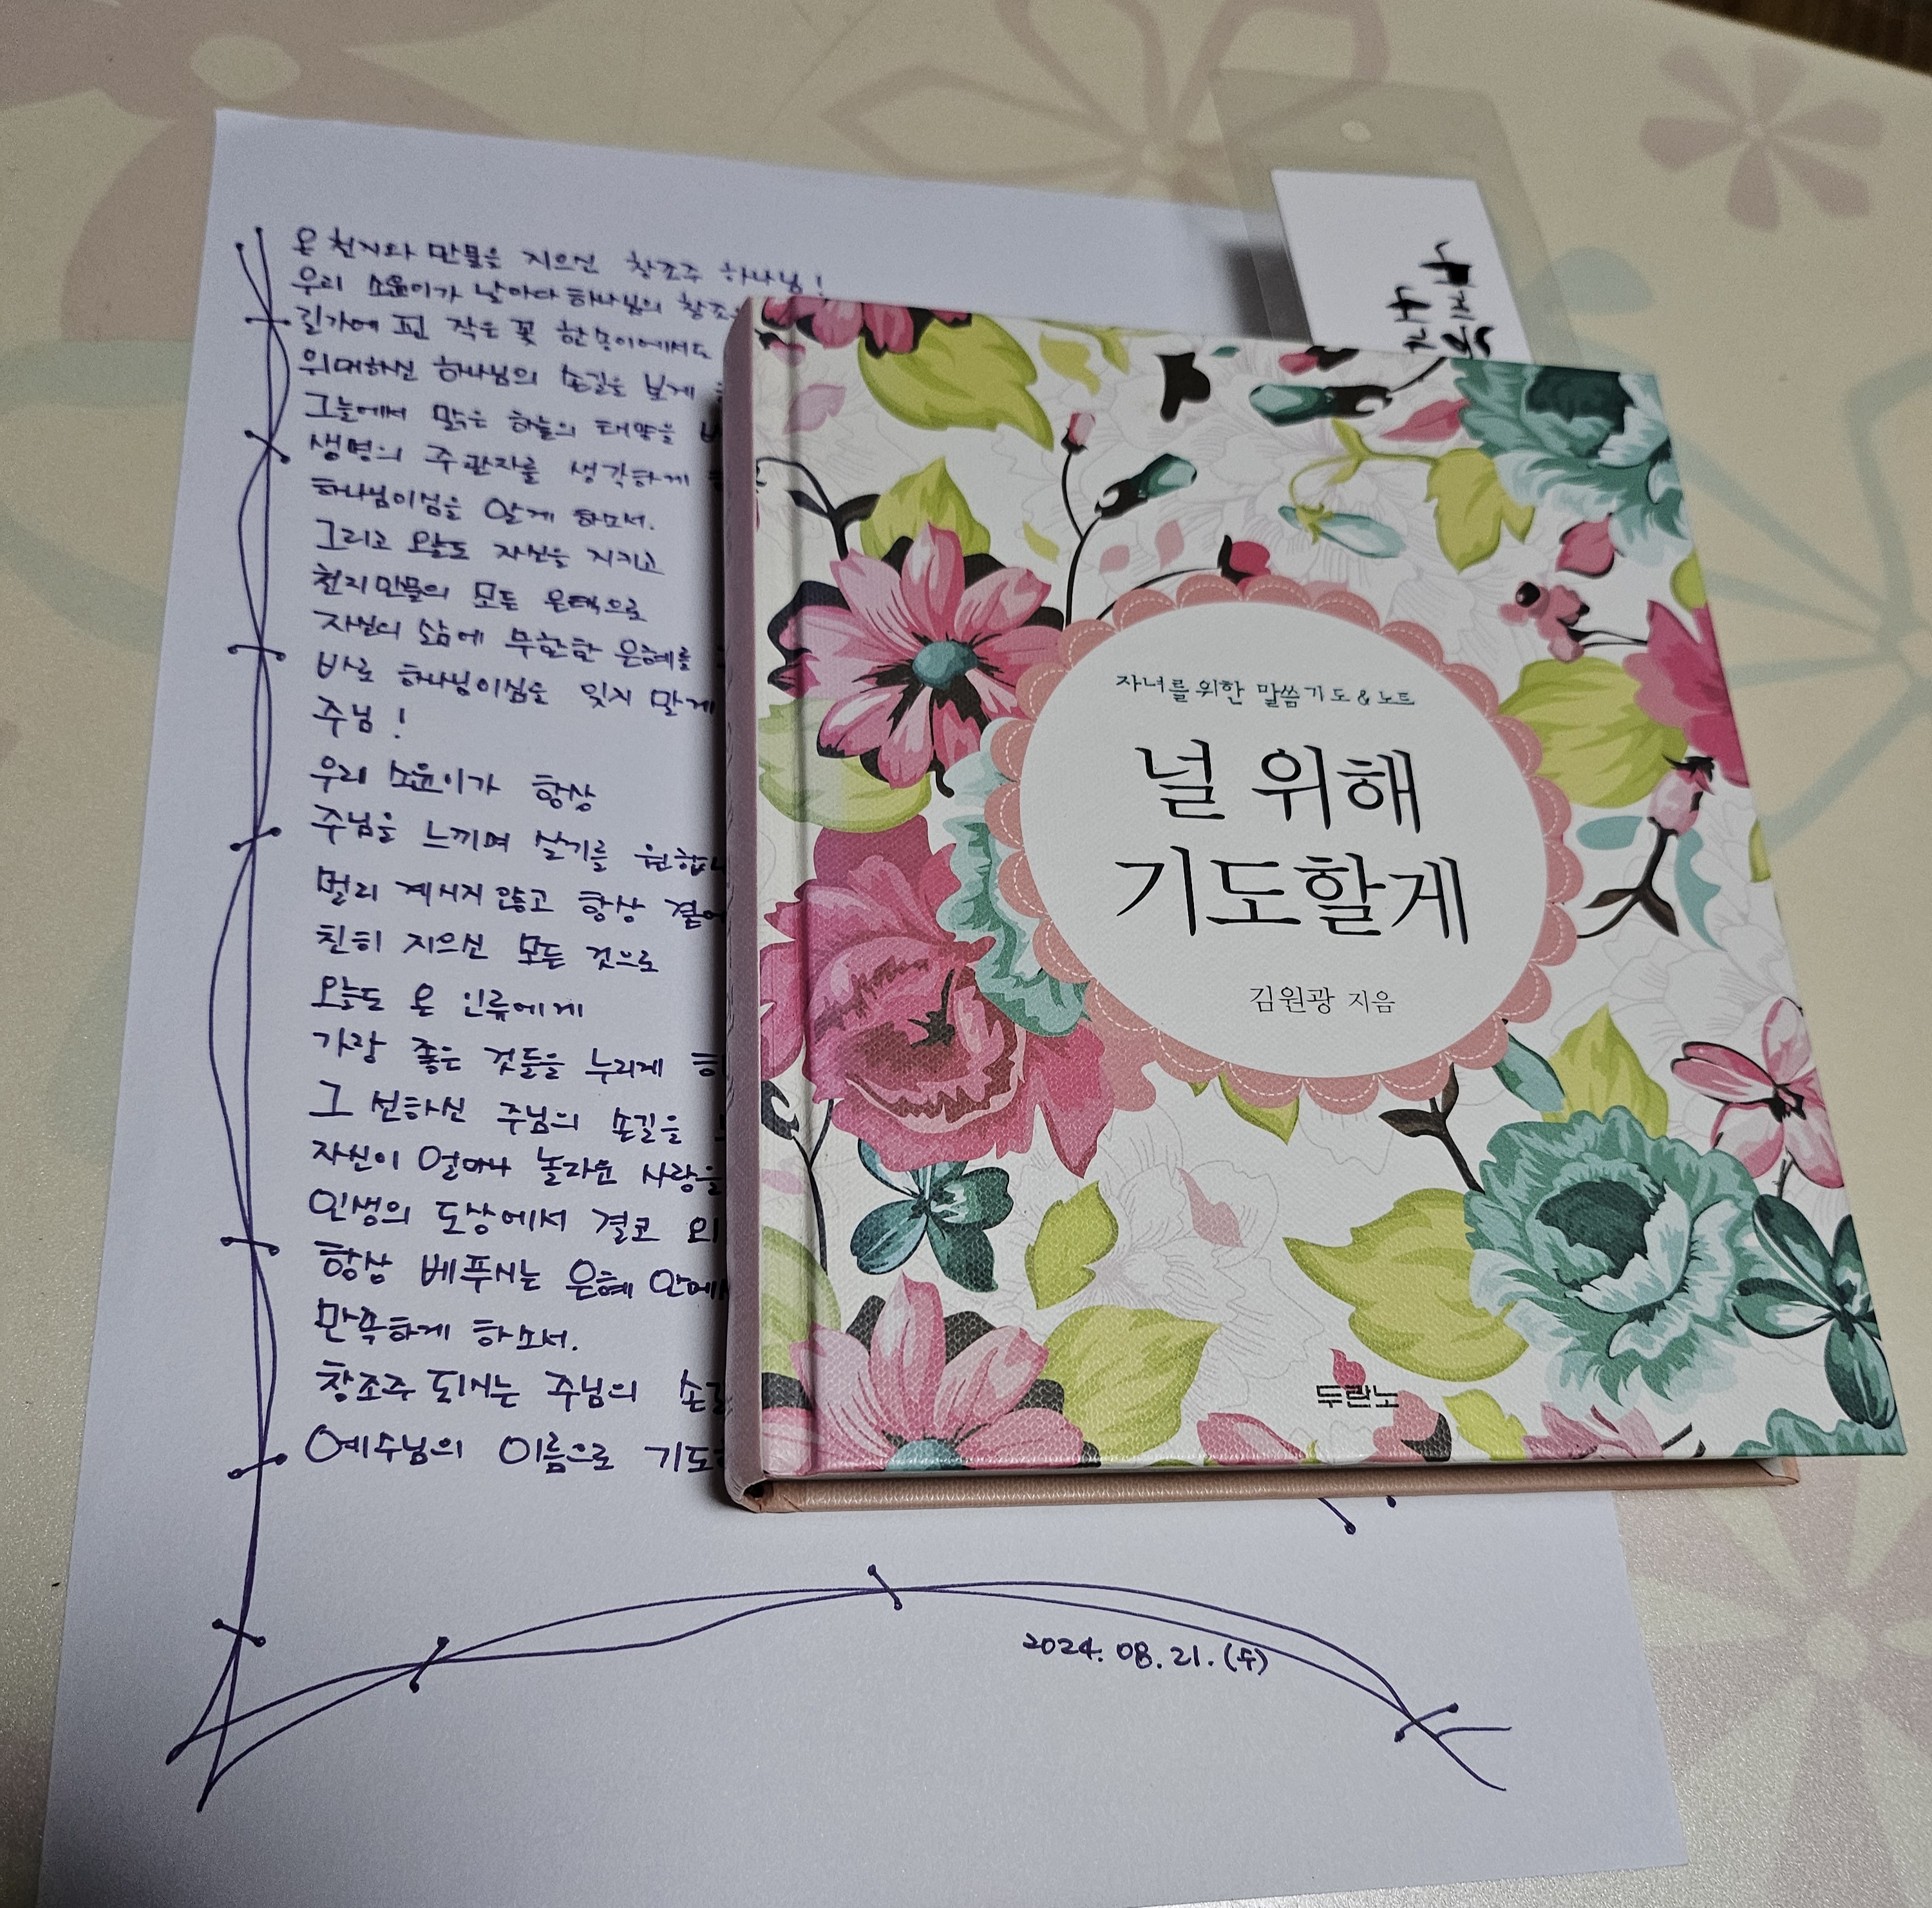 온 천지와 만물을 지으신 창조주 하나님!
우리 소윤이가 날마다 하나님의 창조
길가에 핀 작은 꽃 한송이에서도
위대하신 하나님의 손길을 보게
그늘에서 맑은 하늘의 태양을
생명의 주관자를 생각하게
하나님이심을 알게 하소서.
그리고 오늘도 자신을 지키고
천지만물의 모든 은택으로
자신의 삶에 무한한 은혜를
바로 하나님이심을 잊지 말게
주님!
우리 소윤이가 항상
주님을 느끼며 살기를 원합니
멀리 계시지 않고 항상 곁에
친히 지으신 모든 것으로
오늘도 온 인류에게
가장 좋은 것들을 누리게
그 선하신 주님의 손길을
자신이 얼마나 놀라운 사랑을
인생의 도상에서 결코 외
항상 베푸시는 은혜 안에서
만족하게 하소서.
창조주 되시는 주님의 손길
예수님의 이름으로 기도
2024. 08. 21. (수)
자녀를 위한 말씀기도&노트
널 위해
기도할게
김원광 지음
두란노